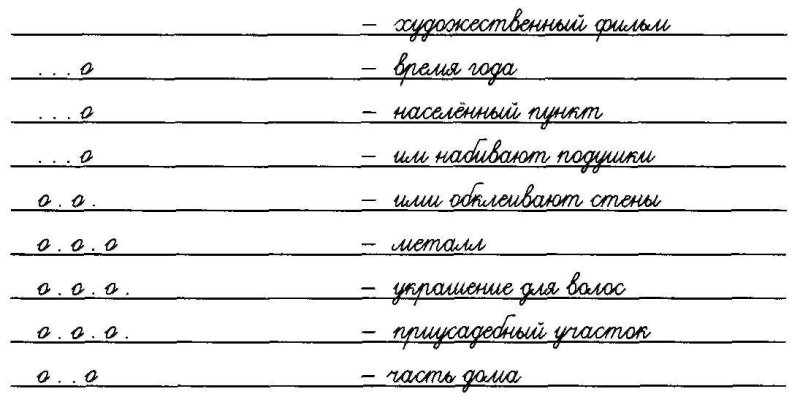 – художественный фильм
...о – время года
...о – населённый пункт
...о – им набивают подушки
о.о. – ими обклеивают стены
о.о.о – металл
о.о.о. – украшение для волос
о.о.о. – приусадебный участок
о..о – часть дома